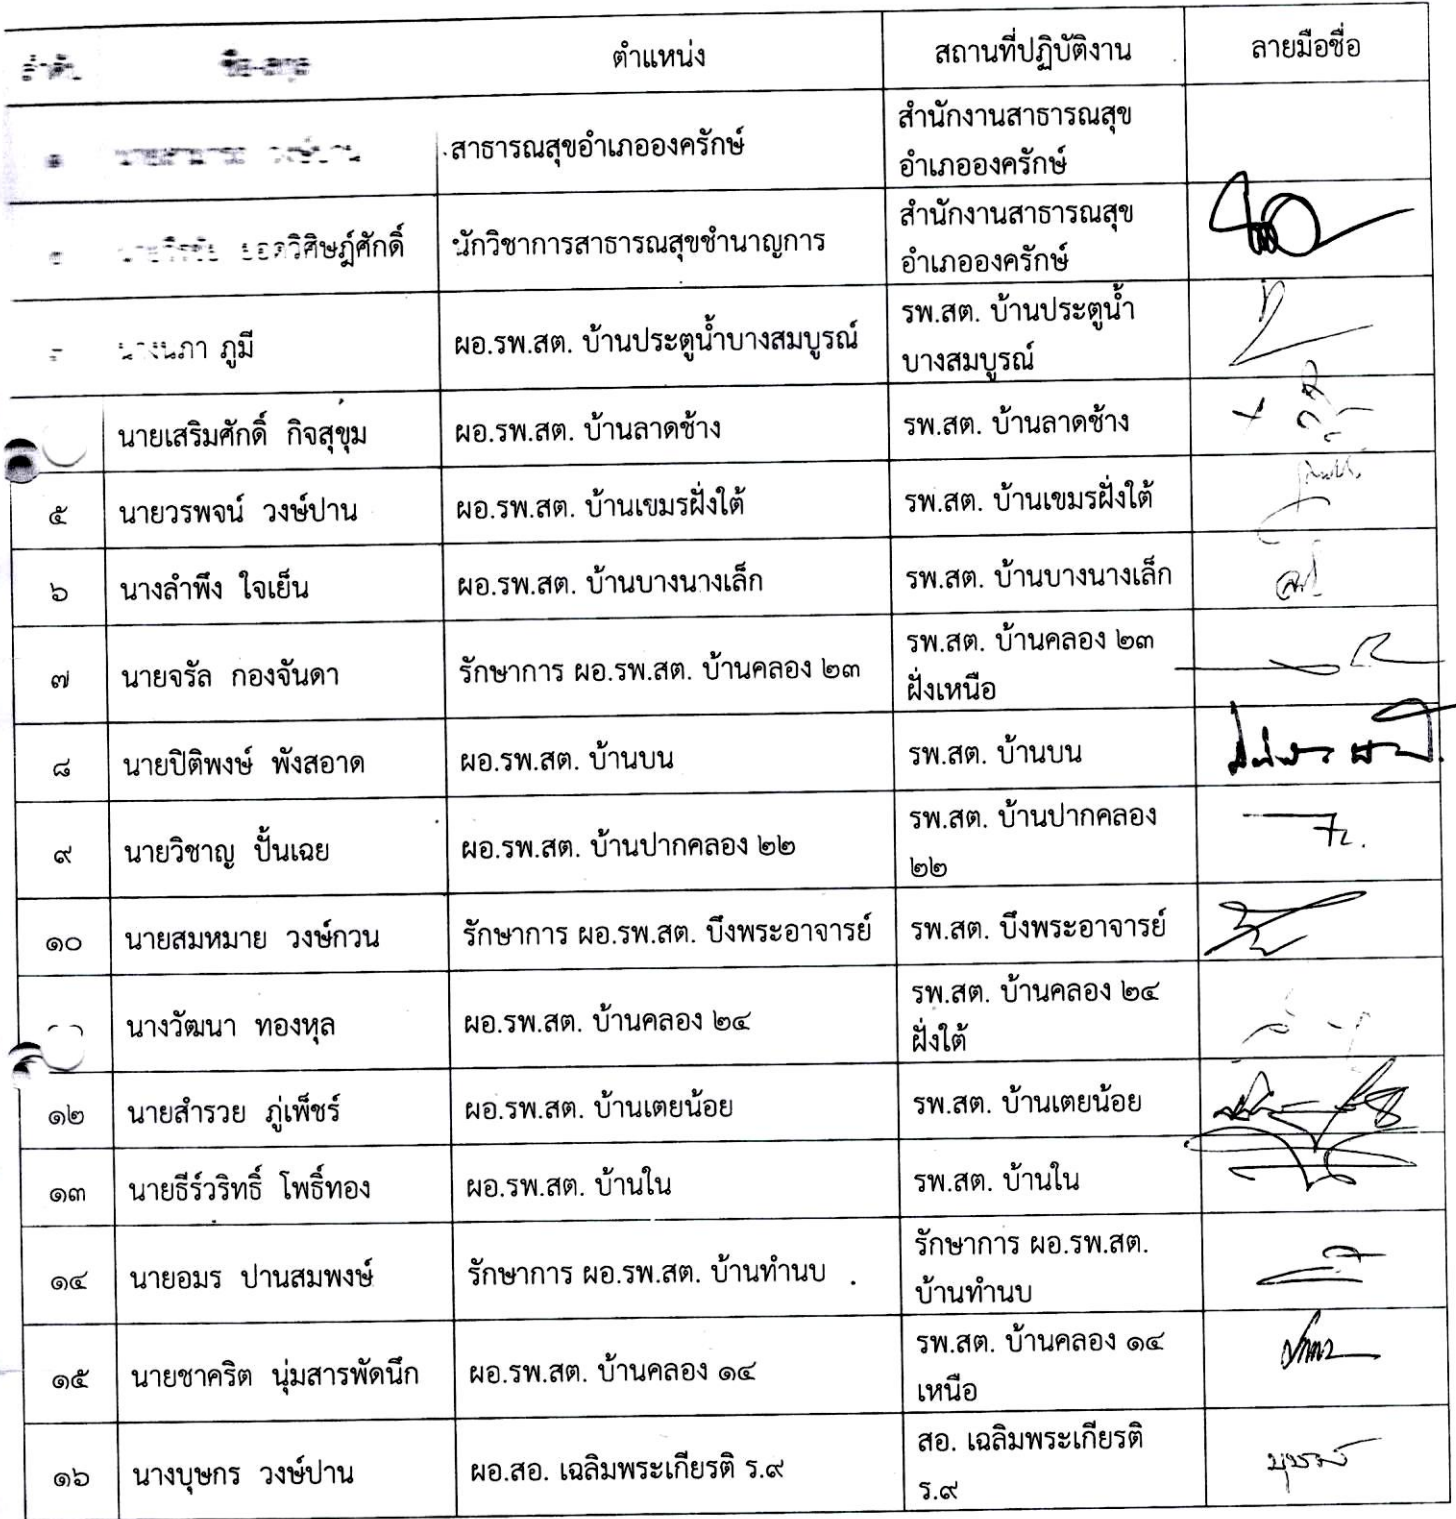 ลำดับ ชื่อ-สกุล ตำแหน่ง สถานที่ปฏิบัติงาน ลายมือชื่อ
๑ วงษ์ปาน สาธารณสุขอำเภอองครักษ์ สำนักงานสาธารณสุข
อำเภอองครักษ์
๒ ยอดวิศิษฎ์ศักดิ์ นักวิชาการสาธารณสุขชำนาญการ สำนักงานสาธารณสุข
อำเภอองครักษ์
๓ นางนภา ภูมี ผอ.รพ.สต. บ้านประตูน้ำบางสมบูรณ์ รพ.สต. บ้านประตูน้ำ
บางสมบูรณ์
นายเสริมศักดิ์ กิจสุขุม ผอ.รพ.สต. บ้านลาดช้าง รพ.สต. บ้านลาดช้าง
๕ นายวรพจน์ วงษ์ปาน ผอ.รพ.สต. บ้านเขมรฝั่งใต้ รพ.สต. บ้านเขมรฝั่งใต้
๖ นางลำพึง ใจเย็น ผอ.รพ.สต. บ้านบางนางเล็ก รพ.สต. บ้านบางนางเล็ก
๗ นายจรัล กองจันดา รักษาการ ผอ.รพ.สต. บ้านคลอง ๒๓ รพ.สต. บ้านคลอง ๒๓
ฝั่งเหนือ
๘ นายปิติพงษ์ พังสอาด ผอ.รพ.สต. บ้านบน รพ.สต. บ้านบน
๙ นายวิชาญ ปั้นเฉย ผอ.รพ.สต. บ้านปากคลอง ๒๒ รพ.สต. บ้านปากคลอง
๒๒
๑๐ นายสมหมาย วงษ์กวน รักษาการ ผอ.รพ.สต. บึงพระอาจารย์ รพ.สต. บึงพระอาจารย์
นางวัฒนา ทองหุล ผอ.รพ.สต. บ้านคลอง ๒๔ รพ.สต. บ้านคลอง ๒๔
ฝั่งใต้
๑๒ นายสำรวย ภู่เพ็ชร์ ผอ.รพ.สต. บ้านเตยน้อย รพ.สต. บ้านเตยน้อย
๑๓ นายธีร์วริทธิ์ โพธิ์ทอง ผอ.รพ.สต. บ้านใน รพ.สต. บ้านใน
๑๔ นายอมร ปานสมพงษ์ รักษาการ ผอ.รพ.สต. บ้านทำนบ รักษาการ ผอ.รพ.สต.
บ้านทำนบ
๑๕ นายชาคริต นุ่มสารพัดนึก ผอ.รพ.สต. บ้านคลอง ๑๔ รพ.สต. บ้านคลอง ๑๔
เหนือ
๑๖ นางบุษกร วงษ์ปาน ผอ.สอ. เฉลิมพระเกียรติ ร.๙ สอ. เฉลิมพระเกียรติ
ร.๙